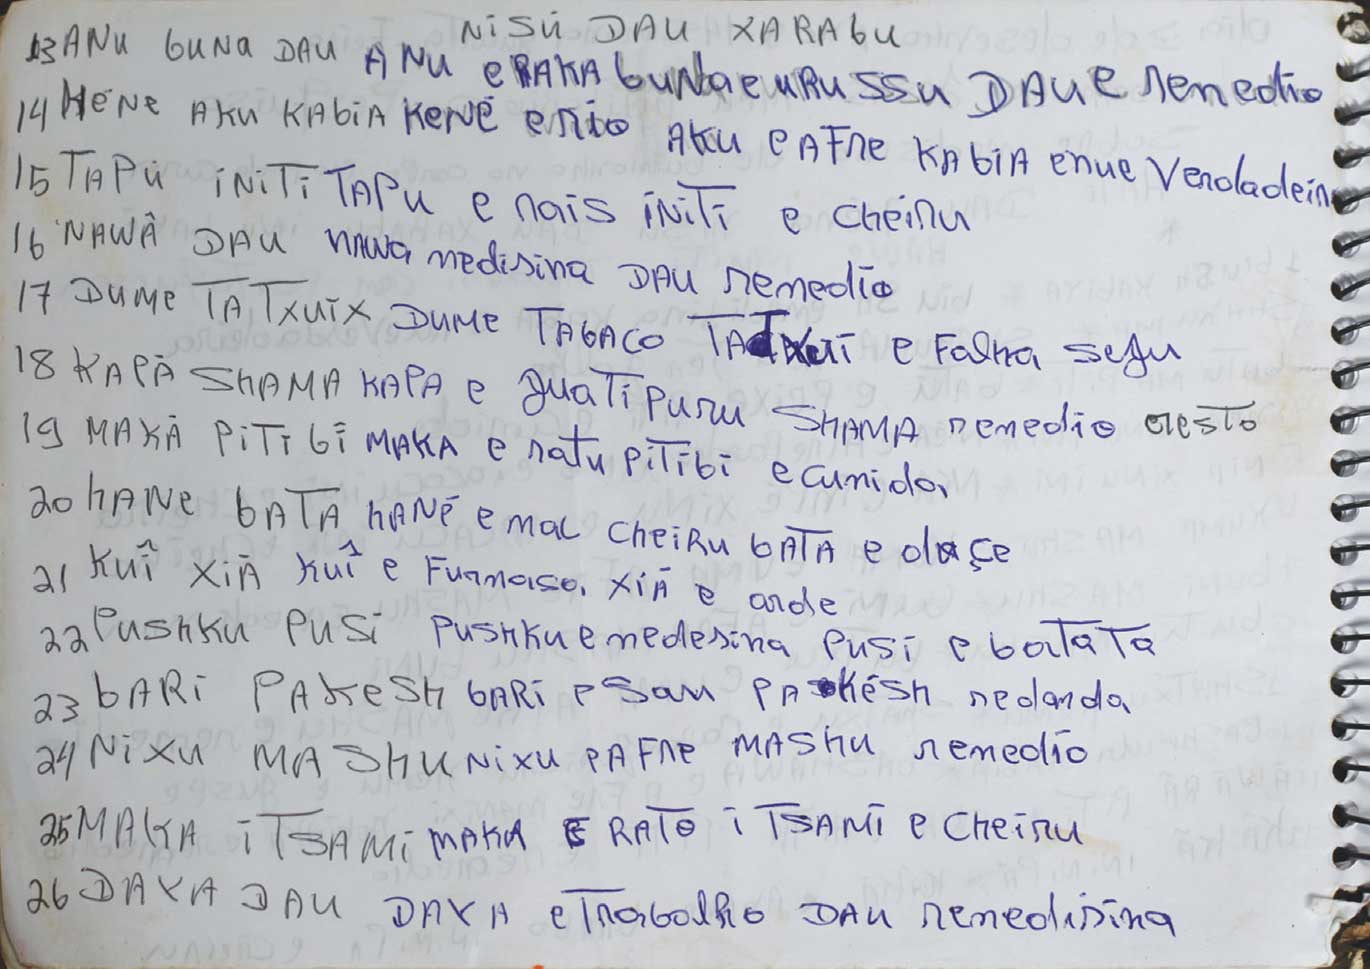 NISÚ DAU XARABU
13 ANU BUNA DAU ANU e RAKA buna e uRussu DAU e remedio
14 HENE AKU KABIA KENÉ e rito AKU e AFRE KABIA e nue Verdadeir
15 TAPÚ INITI TAPU e rais INITI e cheiru
16 NAWÂ DAU nawa medisina DAU remedio
17 DUME TATXUIX DUME TABACO TATXUI e Folha sefu
18 KAPÃ SHAMA KAPA e guatipuru SHAMA remedio desto
19 MAKÃ PITIBI MAKA e ratu PITIBI e cumida
20 hANE bATA hANÊ e mal cheiru bATA e doçe
21 KUÎ XIÃ KUÎ e Furmaso. XIÃ e arde
22 PUSHKU PUSI PUSHKU e medesina PUSI e batata
23 bARI PAKESH bARI e Sau PAKÉSH redanda
24 NIXU MASHU NIXU e AFRE MASHU remedio
25 MAKA ITSAMI MAKA E RATO ITSAMI e cheiru
26 DAYA DAU DAYA e Trabalho DAU remedisina